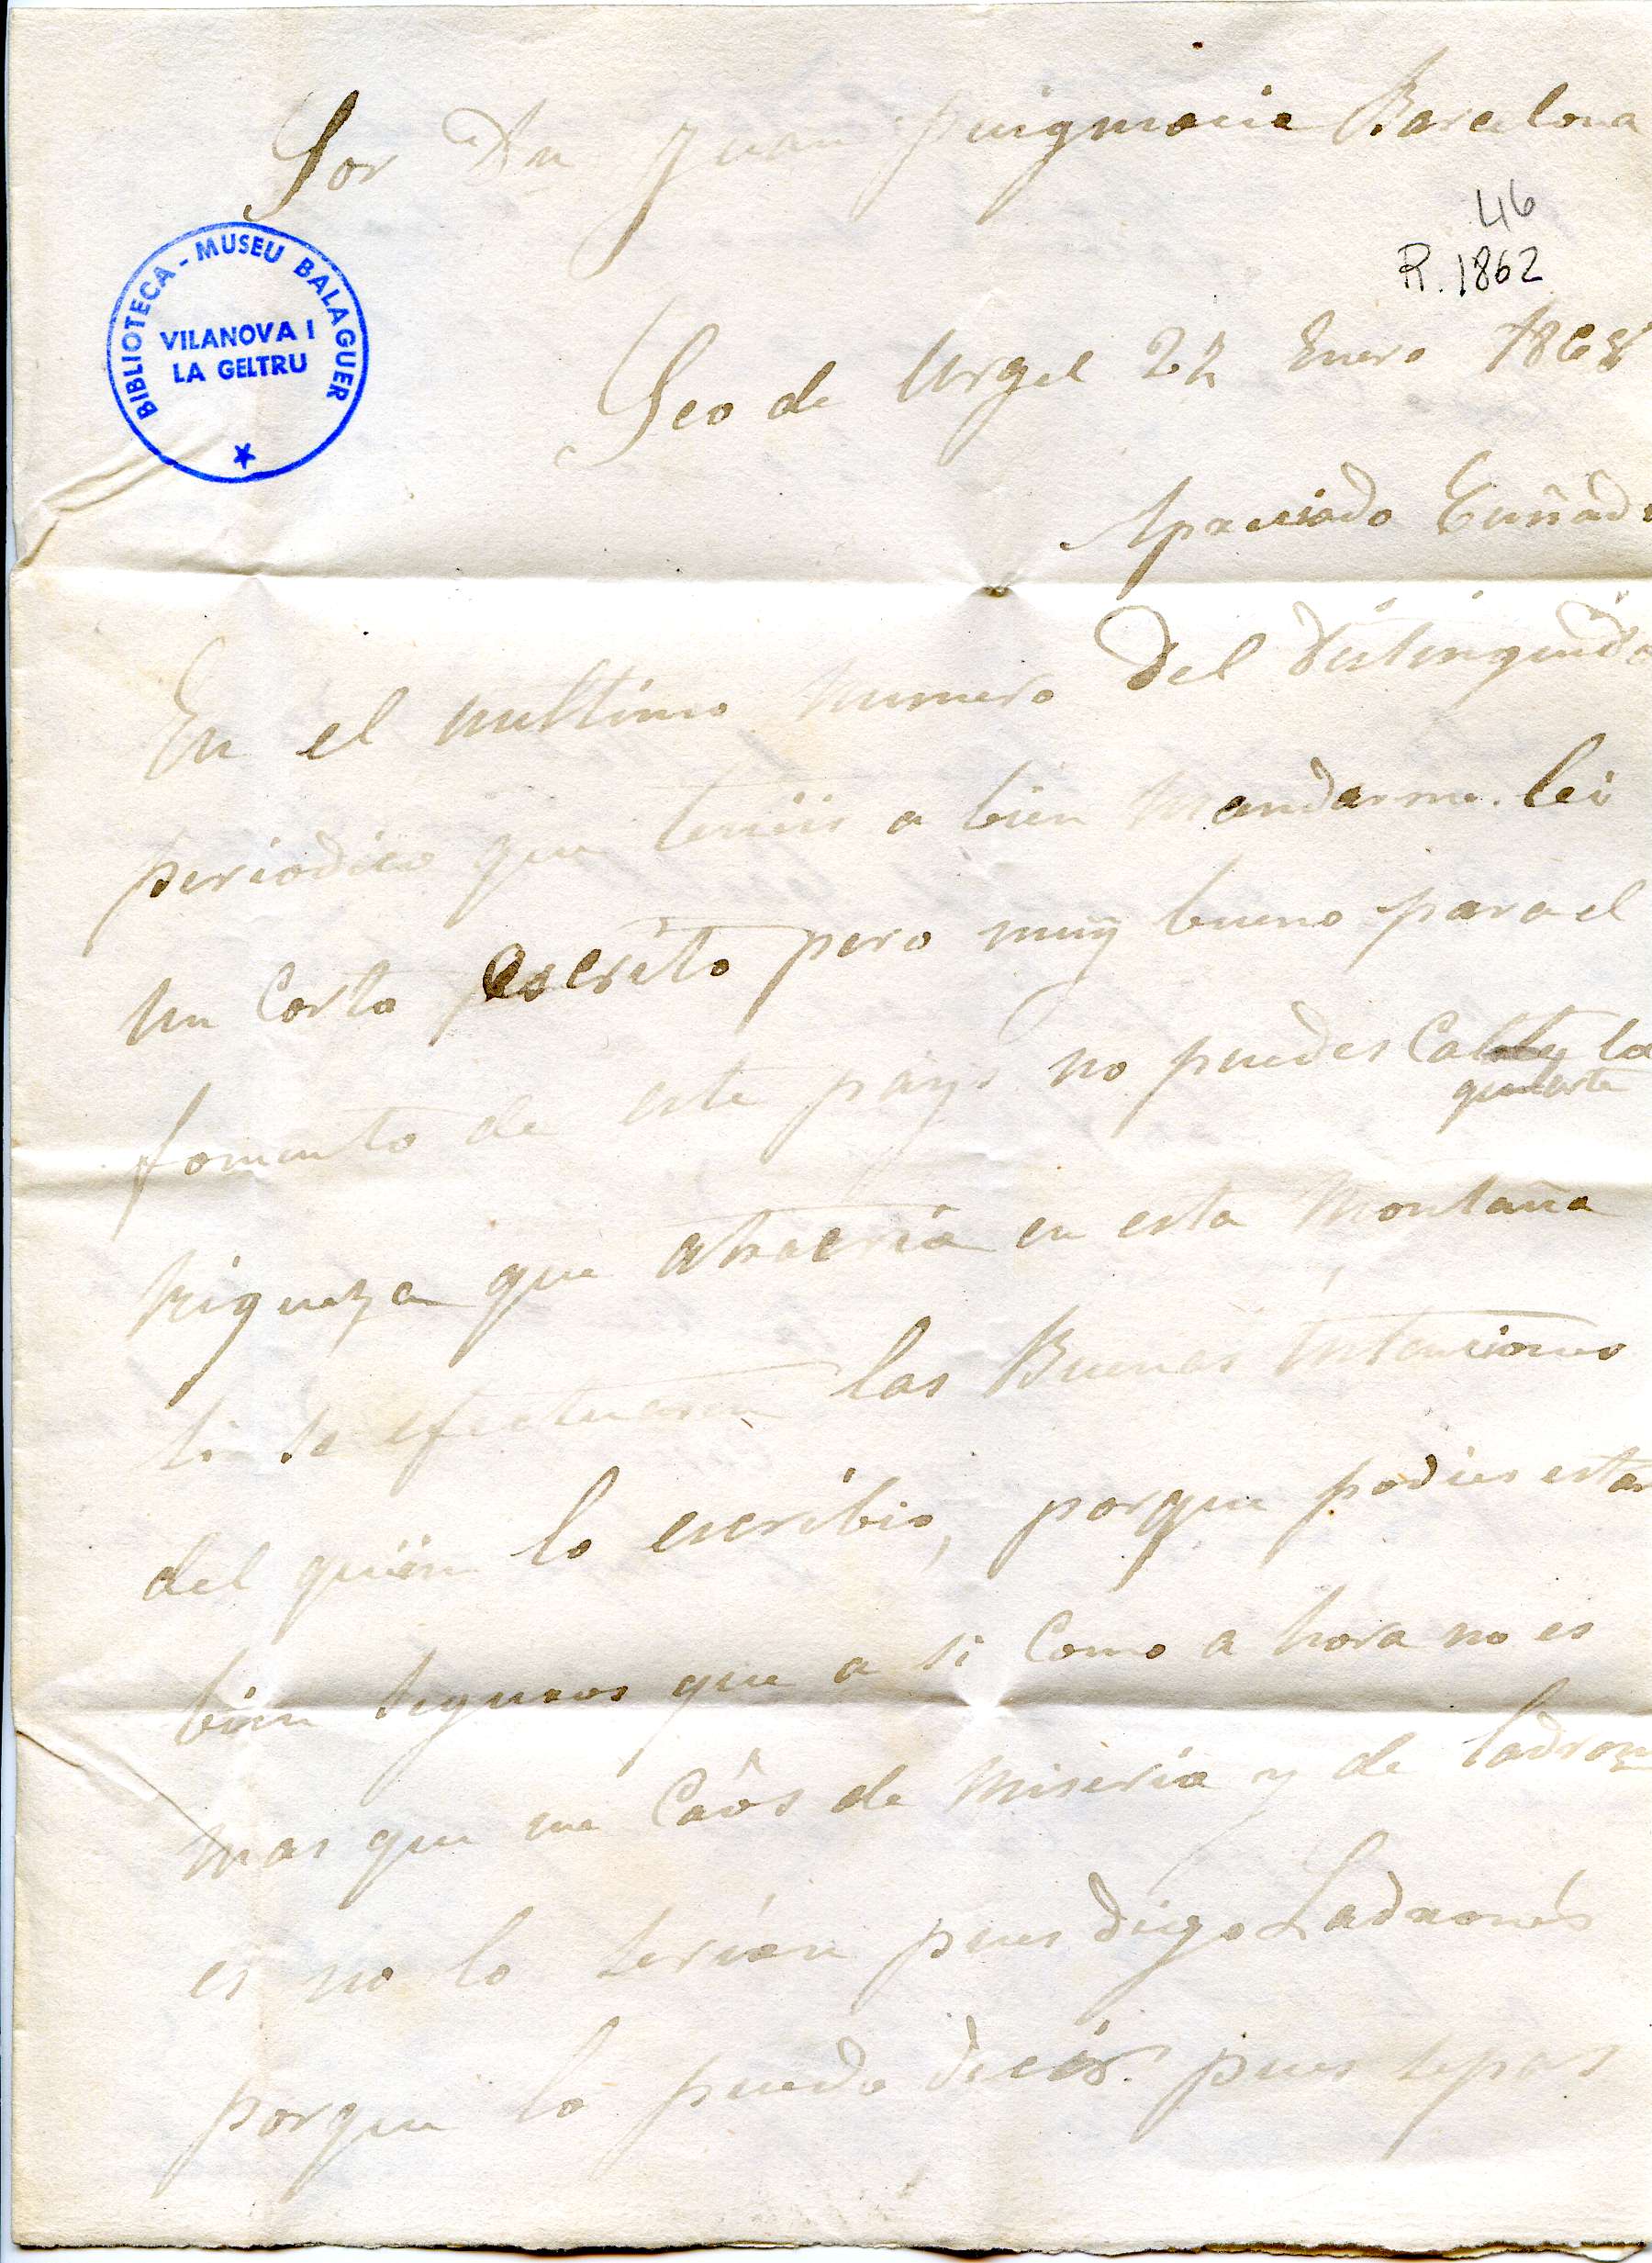 Sor Dn Juan Puigmacia Barcelona
46
R. 1862
BIBLIOTECA - MUSEU BALAGUER
VILANOVA I
LA GELTRU
Seo de Urgel 22 Enero 1868
Apreciado Cuñado
En el ulltimo numero del distinguido
periodico que teniis a bien mandarme. lei
un corto escrito pero muy bueno para el
fomento de este pays no puedes la
riqueza que atraeria en esta Montaña
si se efectuasen las Buenas intenciones
del quien lo escribio, porque podies estar
bien seguros que a si como a hora no es
mas que un Caôs de Miseria y de ladron
es no lo serian pues digo Ladrones
porque lo puedo decir. pues sepas